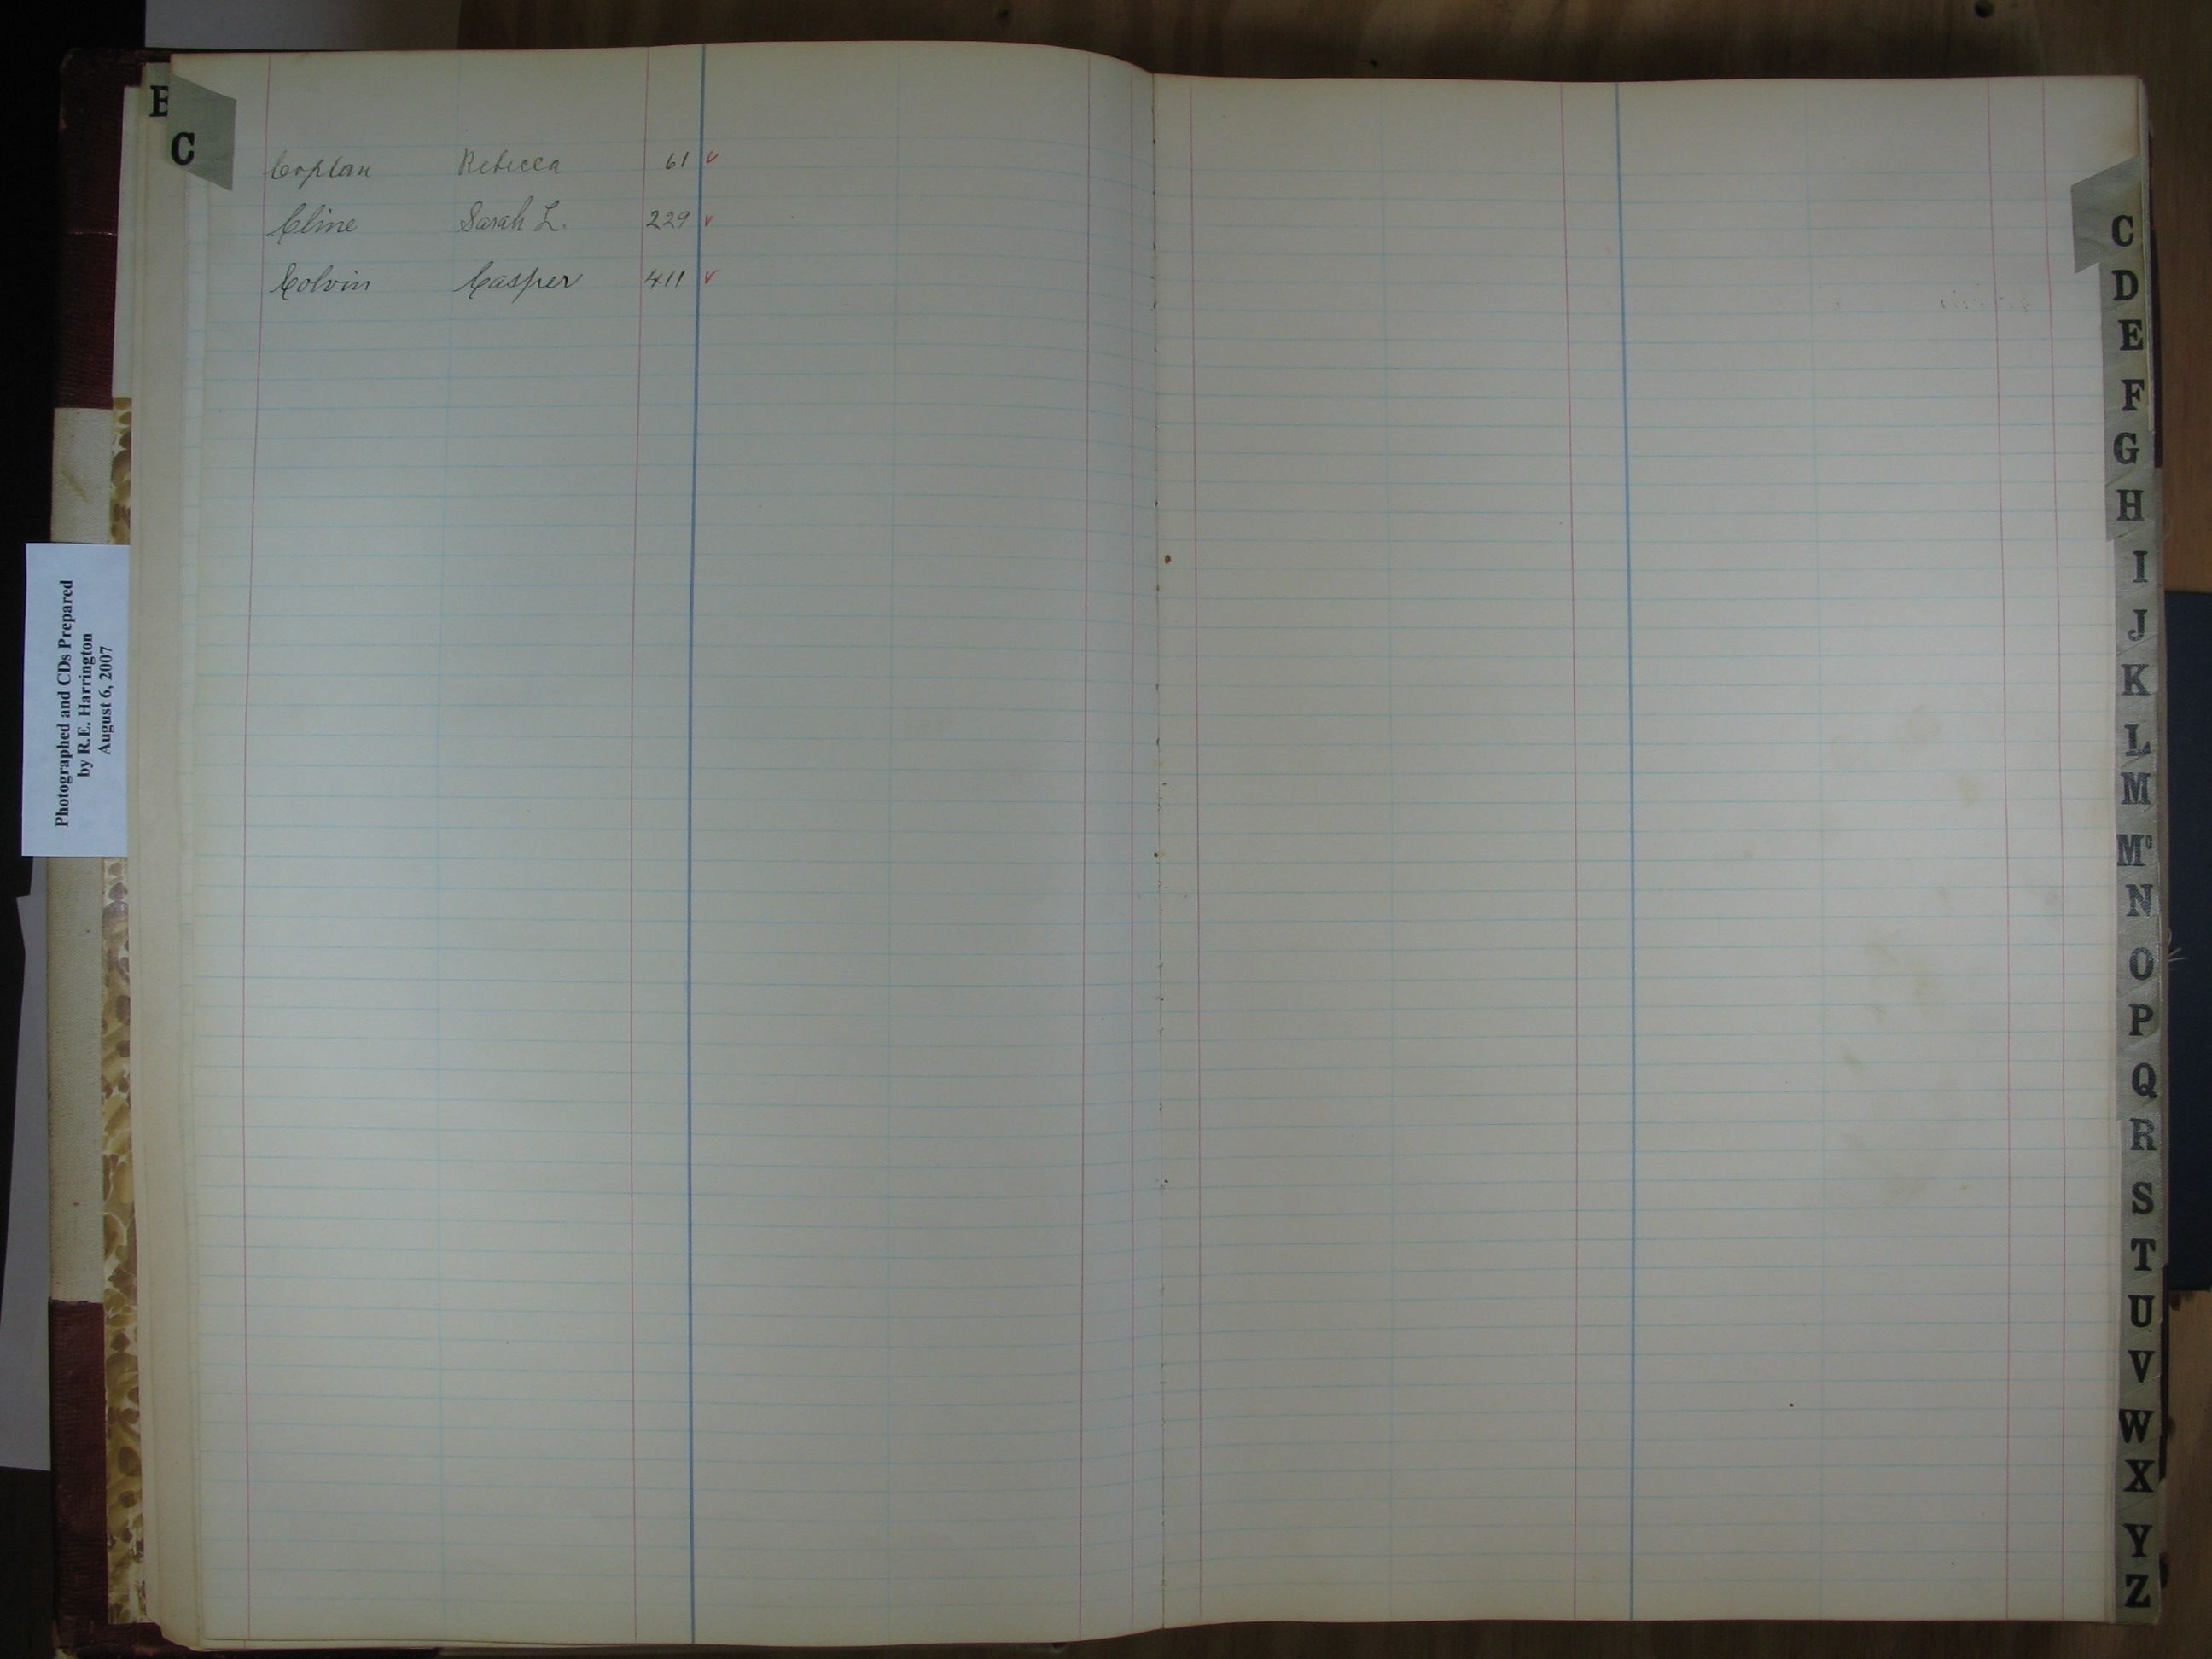 B
C
Coplan Rebecca 61 ✓
Cline Sarah L. 229 ✓
Colvin Casper 411 ✓
Photographed and CDs Prepared
by R.E. Harrington
August 6, 2007
C
D
E
F
G
H
I
J
K
L
M
Mc
N
O
P
Q
R
S
T
U
V
W
X
Y
Z